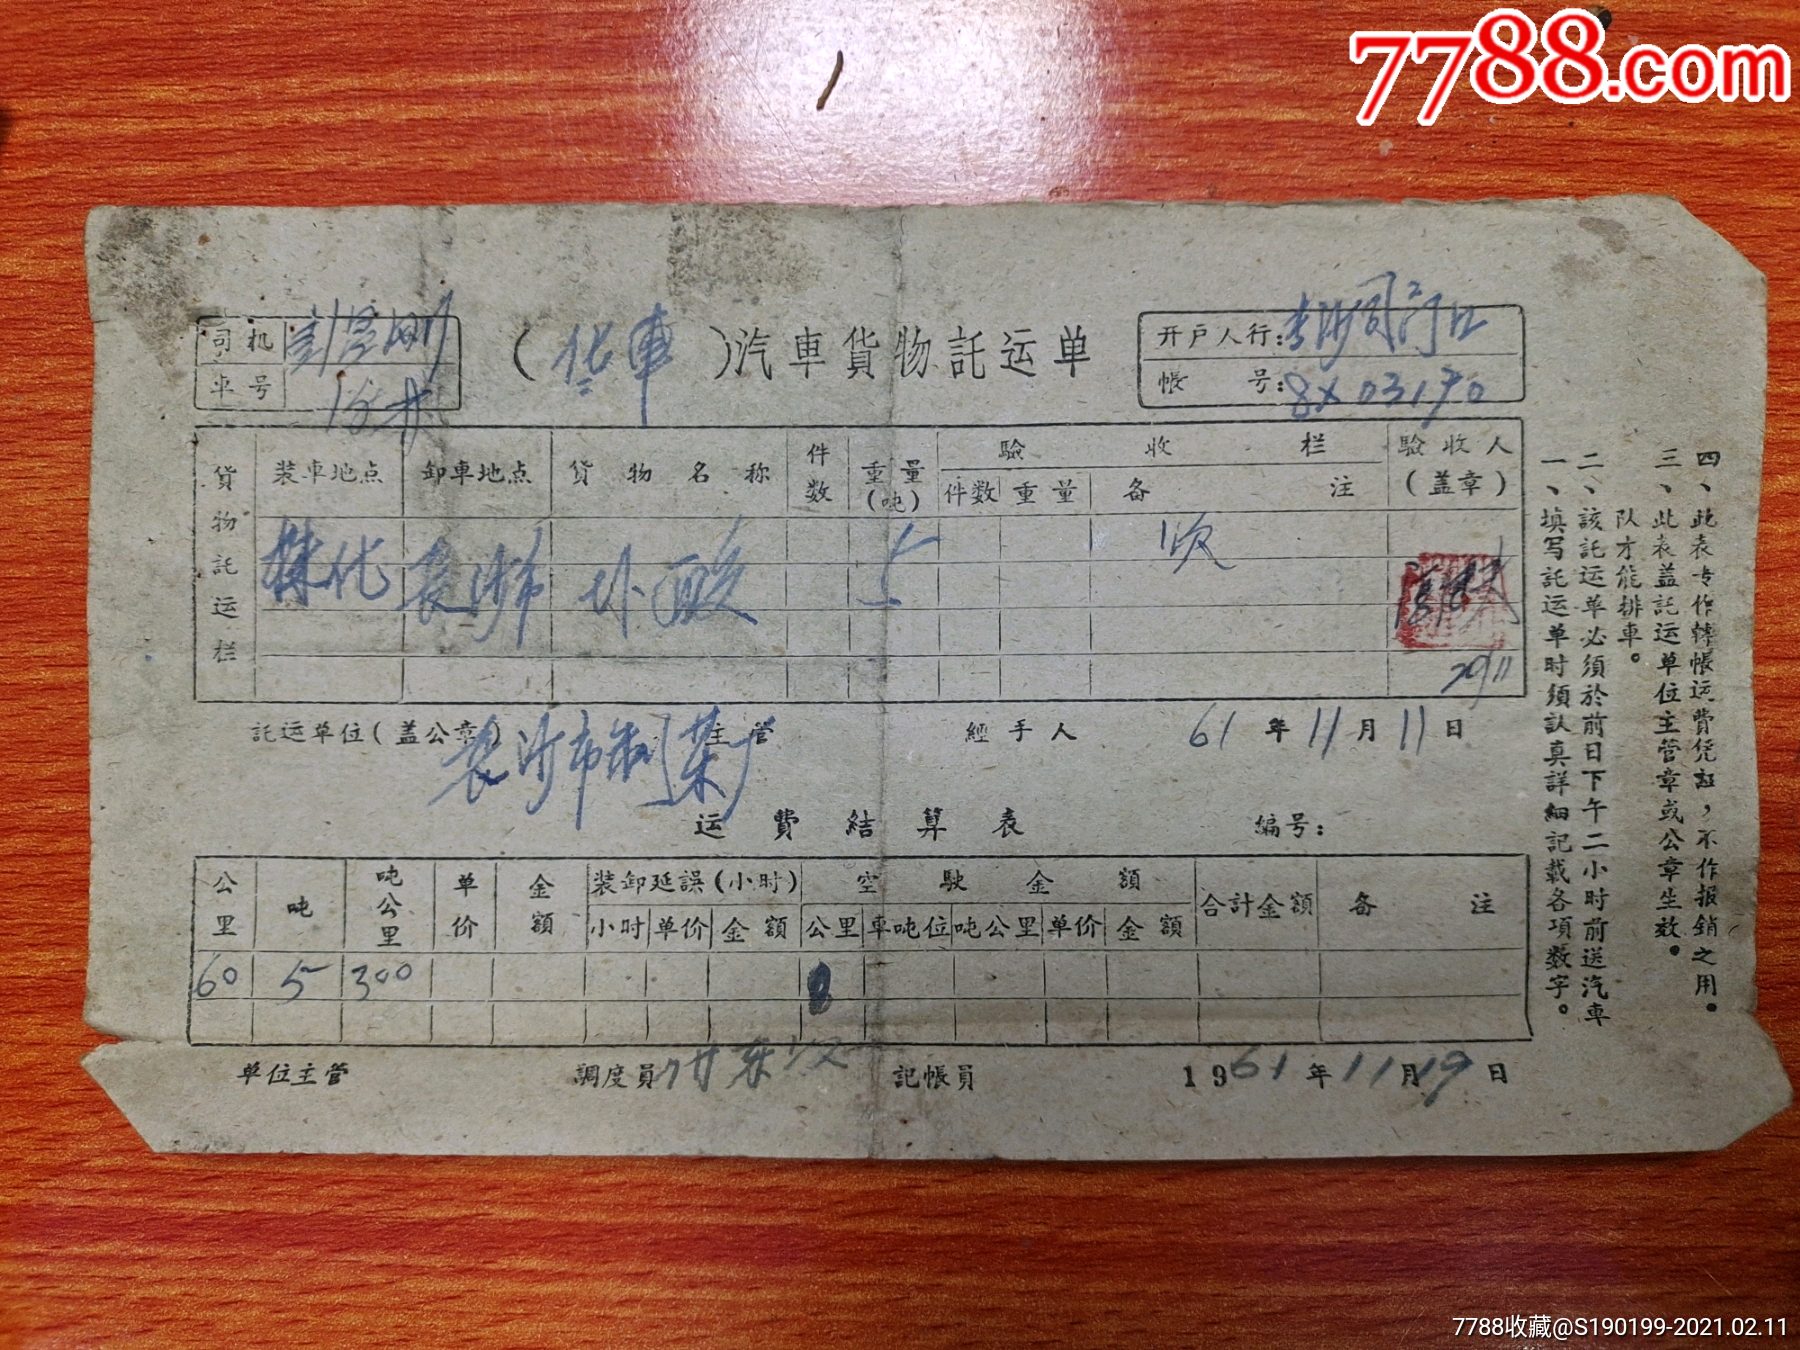 7788.com
司机
車号
(货車)汽車貨物託运单
开户人行:
帳 号: 8X03170
貨物託运栏
装車地点 卸車地点 貨物名称 件数 重量(吨) 驗收栏 驗收人(盖章)
件数 重量 备注
株化 長沙市 卦酸 5 1次
20/11
託运单位(盖公章) 長沙市制药厂 主管 經手人 61年11月11日
运費結算表 編号:
公里 吨 吨公里 单价 金額 装卸延誤(小时) 空駛金額 合計金額 备注
小时 单价 金額 公里 車吨位 吨公里 单价 金額
60 5 300
单位主管 調度員 記帳員 1961年11月19日
一、填写託运单时須认真詳細記載各項数字。
二、該託运单必須於前日下午二小时前送汽車
队才能排車。
三、此表盖託运单位主管章或公章生效。
四、此表专作轉帳运費凭証,不作报銷之用。
7788收藏@S190199-2021.02.11